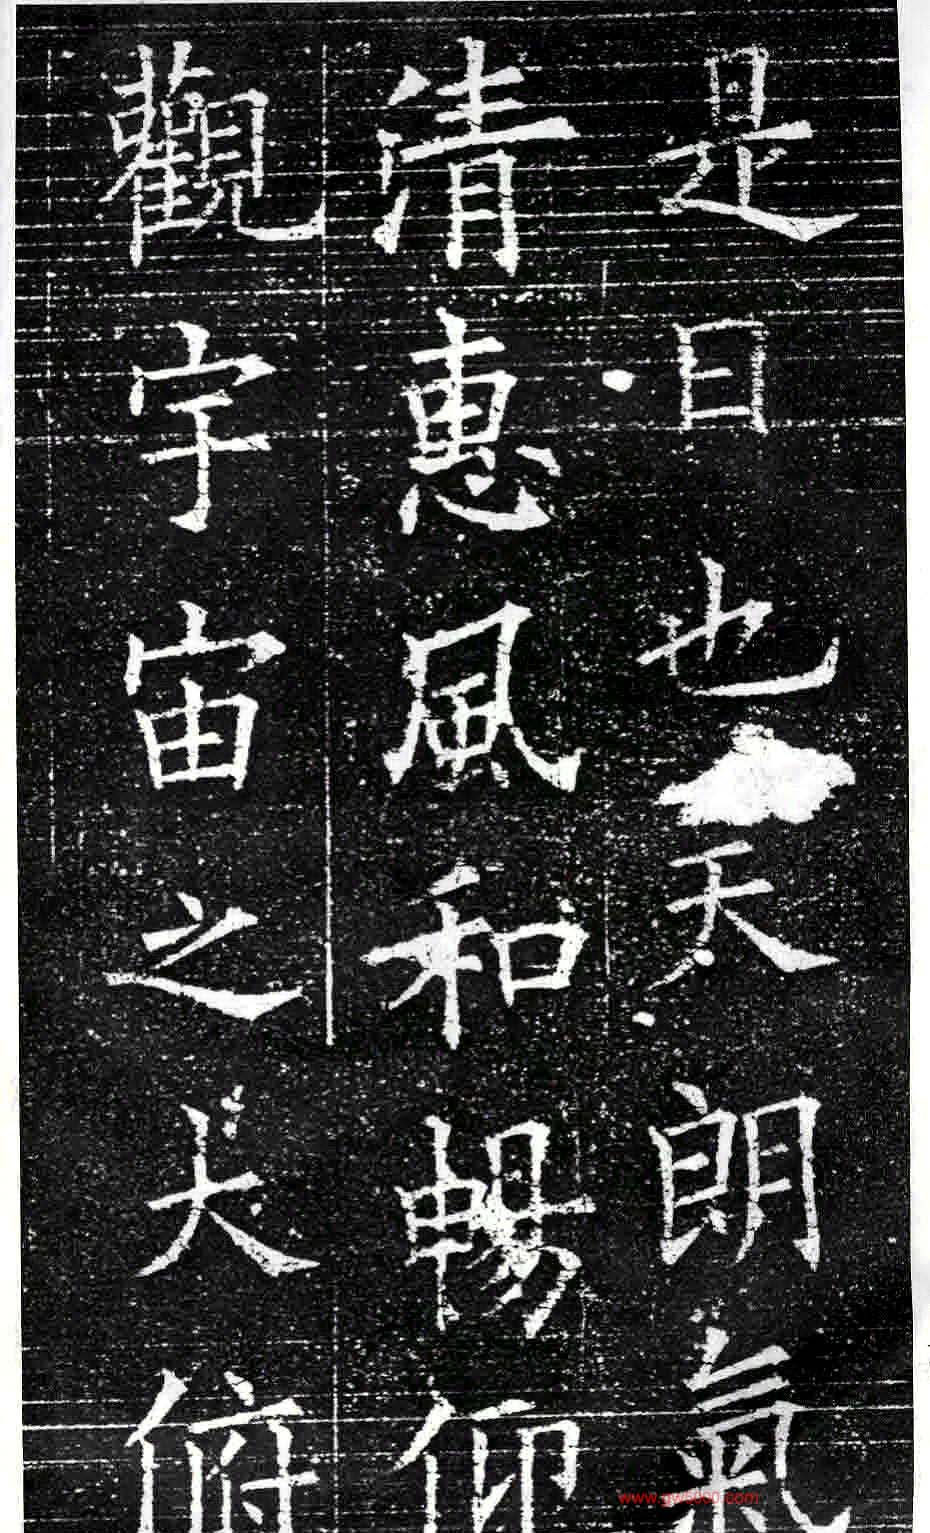 是日也天朗氣
清惠風和暢仰
觀宇宙之大俯
www.gw5000.com